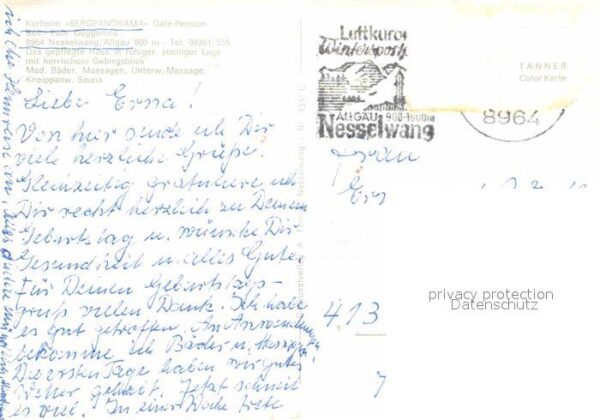 Kurheim »BERGPANORAMA« Café-Pension
Bes. Fam. Guggemos
8964 Nesselwang/Allgäu 900 m - Tel. 08361/555
Das gepflegte Haus in ruhiger, sonniger Lage
mit herrlichem Gebirgsblick
Med. Bäder, Massagen, Unterw.-Massage,
Kneippanw. Sauna
Liebe Erna!
Von hier sende ich Dir
viele herzliche Grüße.
Gleichzeitig gratuliere ich
Dir recht herzlich zu Deinem
Geburtstag u. wünsche Dir
Gesundheit u. alles Gute.
Für Deinen Geburtstags-
gruß vielen Dank. Ich habe
es gut getroffen. An Anwendungen
bekomme ich Bäder u. Massagen.
Die ersten Tage haben wir gutes
Wetter gehabt. Jetzt schneit
es viel. In einer Woche trete
ich die Heimreise an.
Luftkurort
Wintersport
ALLGÄU 900-1600m
Nesselwang
8964
TANNER
Color Karte
Frau
413
privacy protection
Datenschutz